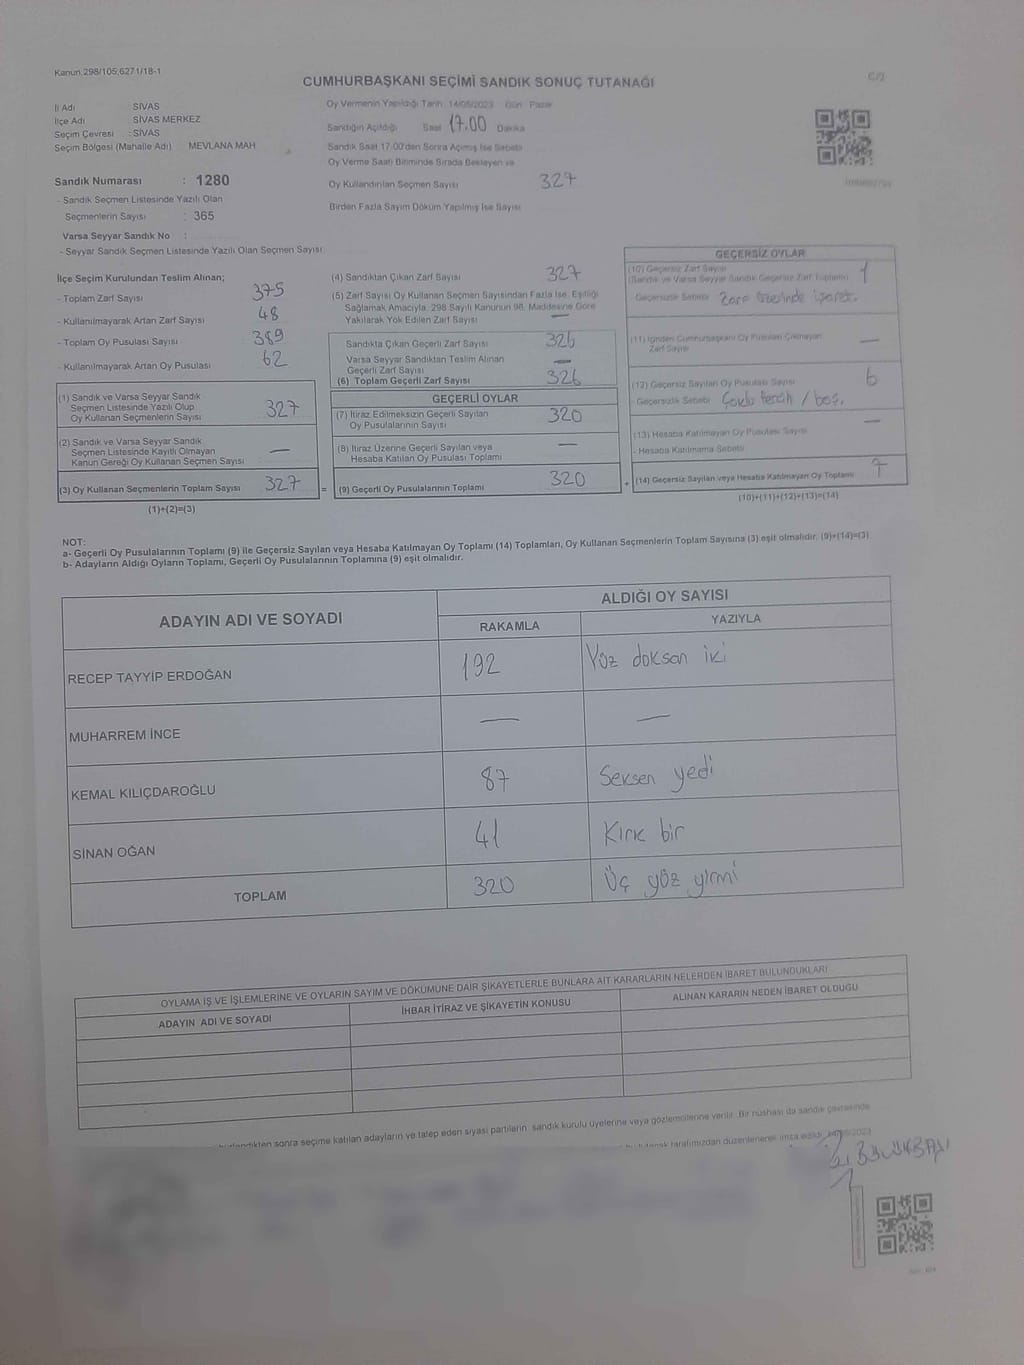 Kanun.298/105,6271/18-1
CUMHURBAŞKANI SEÇİMİ SANDIK SONUÇ TUTANAĞI
İl Adı : SİVAS
İlçe Adı : SİVAS MERKEZ
Seçim Çevresi : SİVAS
Seçim Bölgesi (Mahalle Adı) MEVLANA MAH
Oy Vermenin Yapıldığı Tarih: 14/05/2023 Gün: Pazar
Sandığın Açıldığı Saat 17.00 Dakika
Sandık Saat 17:00'den Sonra Açılmış İse Sebebi
Oy Verme Saati Bitiminde Sırada Bekleyen ve
Oy Kullandırılan Seçmen Sayısı 327
Birden Fazla Sayım Döküm Yapılmış İse Sayısı
Sandık Numarası : 1280
- Sandık Seçmen Listesinde Yazılı Olan
Seçmenlerin Sayısı : 365
Varsa Seyyar Sandık No :
- Seyyar Sandık Seçmen Listesinde Yazılı Olan Seçmen Sayısı:
İlçe Seçim Kurulundan Teslim Alınan;
- Toplam Zarf Sayısı 375
- Kullanılmayarak Artan Zarf Sayısı 48
- Toplam Oy Pusulası Sayısı 389
- Kullanılmayarak Artan Oy Pusulası 62
(1) Sandık ve Varsa Seyyar Sandık
Seçmen Listesinde Yazılı Olup
Oy Kullanan Seçmenlerin Sayısı 327
(2) Sandık ve Varsa Seyyar Sandık
Seçmen Listesinde Kayıtlı Olmayan
Kanun Gereği Oy Kullanan Seçmen Sayısı —
(3) Oy Kullanan Seçmenlerin Toplam Sayısı 327 =
(1)+(2)=(3)
(4) Sandıktan Çıkan Zarf Sayısı 327
(5) Zarf Sayısı Oy Kullanan Seçmen Sayısından Fazla İse, Eşitliği
Sağlamak Amacıyla, 298 Sayılı Kanunun 98. Maddesine Göre
Yakılarak Yok Edilen Zarf Sayısı —
Sandıkta Çıkan Geçerli Zarf Sayısı 326
Varsa Seyyar Sandıktan Teslim Alınan
Geçerli Zarf Sayısı —
(6) Toplam Geçerli Zarf Sayısı 326
GEÇERLİ OYLAR
(7) İtiraz Edilmeksizin Geçerli Sayılan
Oy Pusulalarının Sayısı 320
(8) İtiraz Üzerine Geçerli Sayılan veya
Hesaba Katılan Oy Pusulası Toplamı —
(9) Geçerli Oy Pusulalarının Toplamı 320 +
GEÇERSİZ OYLAR
(10) Geçersiz Zarf Sayısı
(Sandık ve Varsa Seyyar Sandık Geçersiz Zarf Toplamı) 1
- Geçersizlik Sebebi Zarf üzerinde işaret.
(11) İçinden Cumhurbaşkanı Oy Pusulası Çıkmayan
Zarf Sayısı —
(12) Geçersiz Sayılan Oy Pusulası Sayısı 6
- Geçersizlik Sebebi Çoklu tercih / boş.
(13) Hesaba Katılmayan Oy Pusulası Sayısı —
- Hesaba Katılmama Sebebi
(14) Geçersiz Sayılan veya Hesaba Katılmayan Oy Toplamı 7
(10)+(11)+(12)+(13)=(14)
NOT:
a- Geçerli Oy Pusulalarının Toplamı (9) ile Geçersiz Sayılan veya Hesaba Katılmayan Oy Toplamı (14) Toplamları, Oy Kullanan Seçmenlerin Toplam Sayısına (3) eşit olmalıdır. (9)+(14)=(3)
b- Adayların Aldığı Oyların Toplamı, Geçerli Oy Pusulalarının Toplamına (9) eşit olmalıdır.
ADAYIN ADI VE SOYADI
ALDIĞI OY SAYISI
RAKAMLA YAZIYLA
RECEP TAYYİP ERDOĞAN 192 Yüz doksan iki
MUHARREM İNCE — —
KEMAL KILIÇDAROĞLU 87 Seksen yedi
SİNAN OĞAN 41 Kırk bir
TOPLAM 320 Üç yüz yirmi
OYLAMA İŞ VE İŞLEMLERİNE VE OYLARIN SAYIM VE DÖKÜMÜNE DAİR ŞİKAYETLERLE BUNLARA AİT KARARLARIN NELERDEN İBARET BULUNDUKLARI
ADAYIN ADI VE SOYADI İHBAR İTİRAZ VE ŞİKAYETİN KONUSU ALINAN KARARIN NEDEN İBARET OLDUĞU
sonra seçime katılan adayların ve talep eden siyasi partilerin, sandık kurulu üyelerine veya gözlemcilerine verilir. Bir nüshası da sandık çevresinde
tarafımızdan düzenlenerek imza edildi.